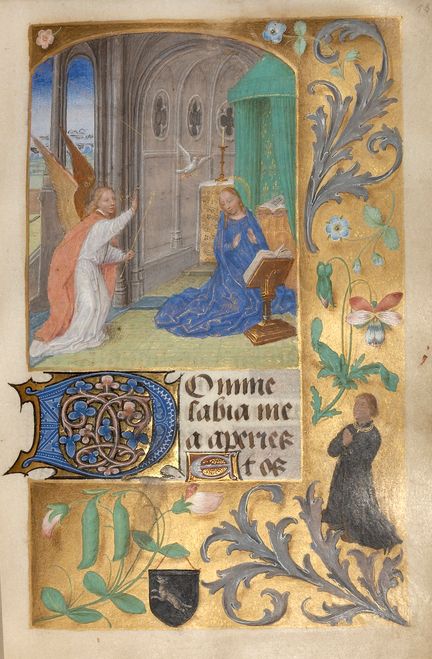 Domine
labia me
a aperies
et os